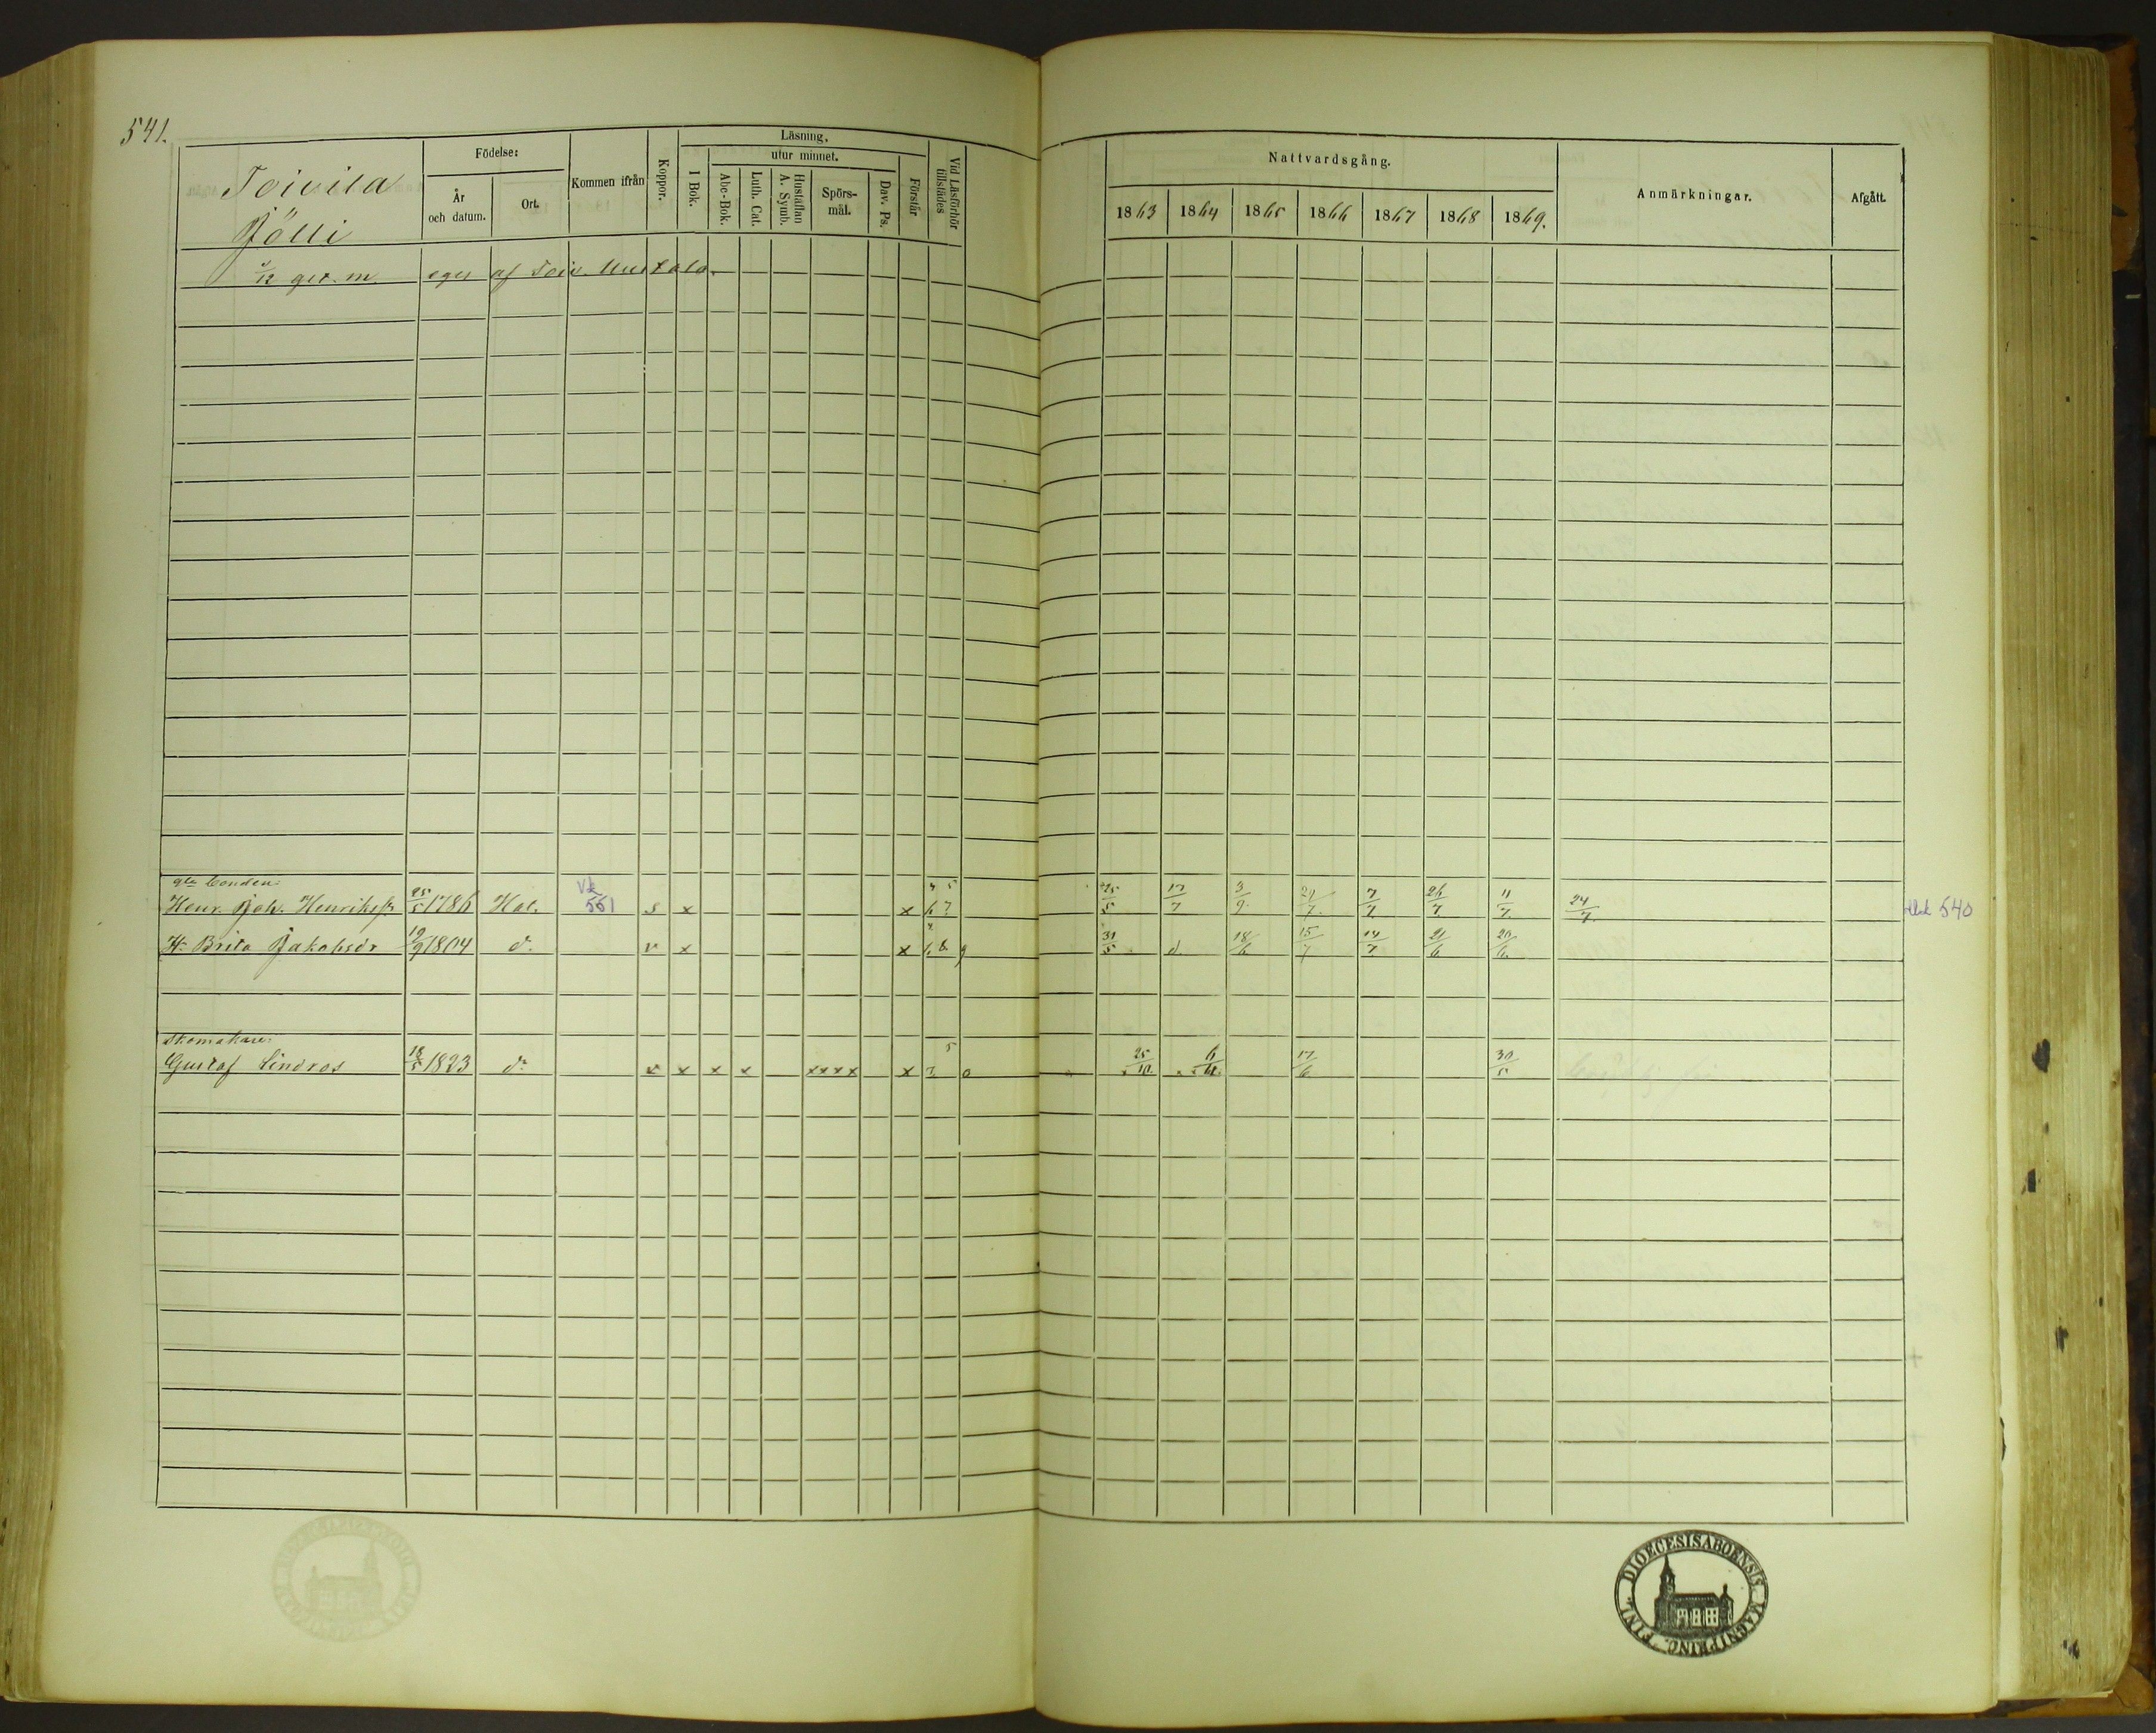 541.
Toivila
Jölli
Födelse:
År och datum.
Ort.
Kommen ifrån
Koppor.
Läsning.
I Bok.
utur minnet.
Abc-Bok.
Luth. Cat.
Hustaflan A. Symb.
Spörsmål.
Dav. Ps.
Förstår
Vid Läsförhör tillstädes
Nattvardsgång.
1863 1864 1865 1866 1867 1868 1869.
Anmärkningar.
Afgått.
/12 get. m. eges af Toiv. Uustalo.
gle bonden:
Henr. Joh. Henrikss. 25/5 1786 Hal. Vk 551 s x x 25/5 17/7 3/9 7/7 26/7 11/7 24/7 540
H. Brita Jakobsdr 19/9 1804 d:o v x x 31/5 d 18/6 15/7 14/7 21/6 20/6
Skomakare:
Gustaf Lindros 18/5 1823 d:o v x x x xxxx x 25/10 17/6 30/5
DIOECESIS ABOENSIS MAGNI PRINC. FINL.